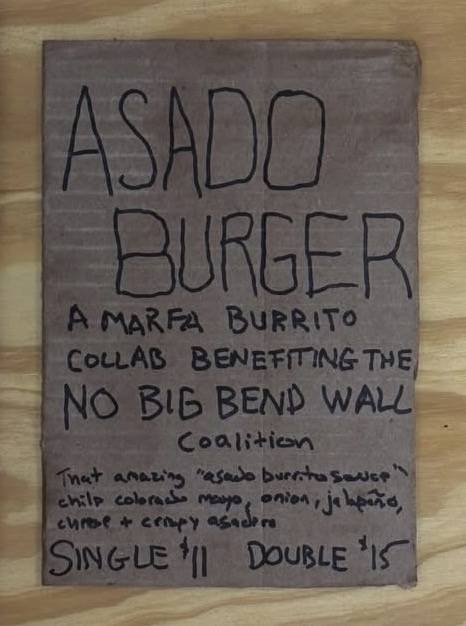 ASADO
BURGER
A MARFA BURRITO
COLLAB BENEFITING THE
NO BIG BEND WALL
Coalition
That amazing "asado burrito sauce"
chile colorado mayo, onion, jalapeño,
+ crispy asadero
SINGLE $11 DOUBLE $15